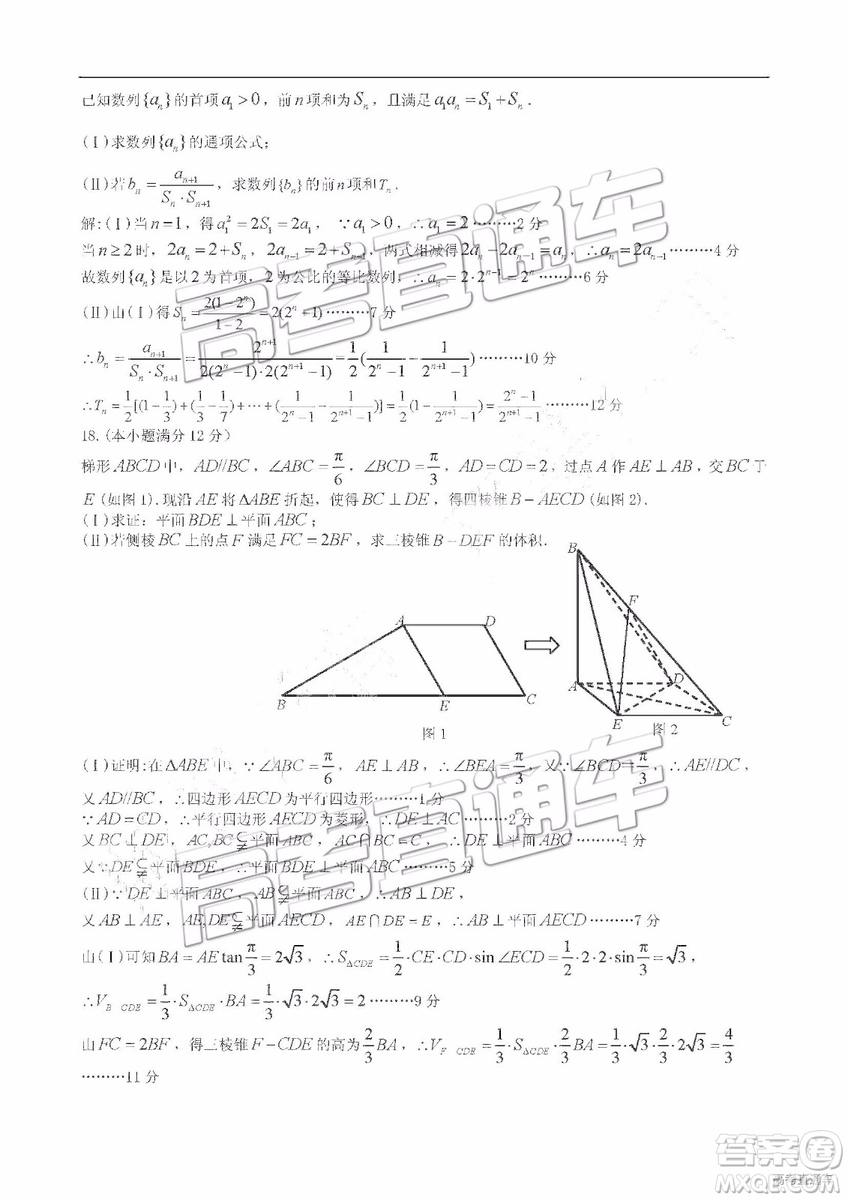 已知数列{aₙ}的首项a₁>0，前n项和为Sₙ，且满足a₁aₙ=S₁+Sₙ．
(Ⅰ)求数列{aₙ}的通项公式；
(Ⅱ)若bₙ=aₙ₊₁/(Sₙ·Sₙ₊₁)，求数列{bₙ}的前n项和Tₙ．
解:(Ⅰ)当n=1，得a₁²=2S₁=2a₁，∵a₁>0，∴a₁=2………2分
当n≥2时，2aₙ=2+Sₙ，2aₙ₋₁=2+Sₙ₋₁，两式相减得2aₙ−2aₙ₋₁=aₙ，∴aₙ=2aₙ₋₁………4分
故数列{aₙ}是以2为首项，2为公比的等比数列，∴aₙ=2·2ⁿ⁻¹=2ⁿ………6分
(Ⅱ)由(Ⅰ)得Sₙ=2(1−2ⁿ)/(1−2)=2(2ⁿ−1)………7分
∴bₙ=aₙ₊₁/(Sₙ·Sₙ₊₁)=2ⁿ⁺¹/(2(2ⁿ−1)·2(2ⁿ⁺¹−1))=1/2(1/(2ⁿ−1)−1/(2ⁿ⁺¹−1))………10分
∴Tₙ=1/2[(1−1/3)+(1/3−1/7)+…+(1/(2ⁿ−1)−1/(2ⁿ⁺¹−1))]=1/2(1−1/(2ⁿ⁺¹−1))=(2ⁿ−1)/(2ⁿ⁺¹−1)………12分
18.(本小题满分12分)
梯形ABCD中，AD//BC，∠ABC=π/6，∠BCD=π/3，AD=CD=2，过点A作AE⊥AB，交BC于
E(如图1)．现沿AE将ΔABE折起，使得BC⊥DE，得四棱锥B−AECD(如图2)．
(Ⅰ)求证：平面BDE⊥平面ABC；
(Ⅱ)若侧棱BC上的点F满足FC=2BF，求三棱锥B−DEF的体积．
A D
B E C
图1
B
F
A D
E C
图2
(Ⅰ)证明:在ΔABE中，∵∠ABC=π/6，AE⊥AB，∴∠BEA=π/3，又∵∠BCD=π/3，∴AE//DC，
又AD//BC，∴四边形AECD为平行四边形………1分
∵AD=CD，∴平行四边形AECD为菱形，∴DE⊥AC………2分
又BC⊥DE，AC,BC⫋平面ABC，AC∩BC=C，∴DE⊥平面ABC………4分
又∵DE⫋平面BDE，∴平面BDE⊥平面ABC………5分
(Ⅱ)∵DE⊥平面ABC，AB⫋平面ABC，∴AB⊥DE，
又AB⊥AE，AE,DE⫋平面AECD，AE∩DE=E，∴AB⊥平面AECD………7分
由(Ⅰ)可知BA=AEtanπ/3=2√3，∴S△CDE=1/2·CE·CD·sin∠ECD=1/2·2·2·sinπ/3=√3，
∴V B−CDE=1/3·S△CDE·BA=1/3·√3·2√3=2………9分
由FC=2BF，得三棱锥F−CDE的高为2/3BA，∴V F−CDE=1/3·S△CDE·2/3BA=1/3·√3·2/3·2√3=4/3
………11分
高考直通车
高考直通车
答案圈
MXQE.COM